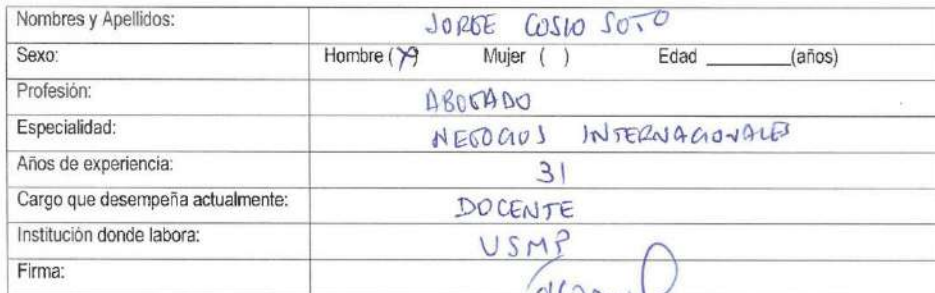 Nombres y Apellidos: JORGE COSIO SOTO
Sexo: Hombre (X) Mujer ( ) Edad ________(años)
Profesión: ABOGADO
Especialidad: NEGOCIOS INTERNACIONALES
Años de experiencia: 31
Cargo que desempeña actualmente: DOCENTE
Institución donde labora: USMP
Firma: